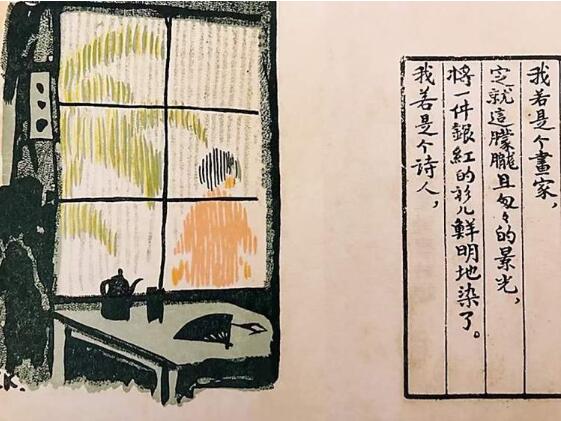 我若是个畫家，
定就這朦朧且匆々的景光，
將一件銀紅的衫儿鮮明地染了。
我若是个诗人，
K.